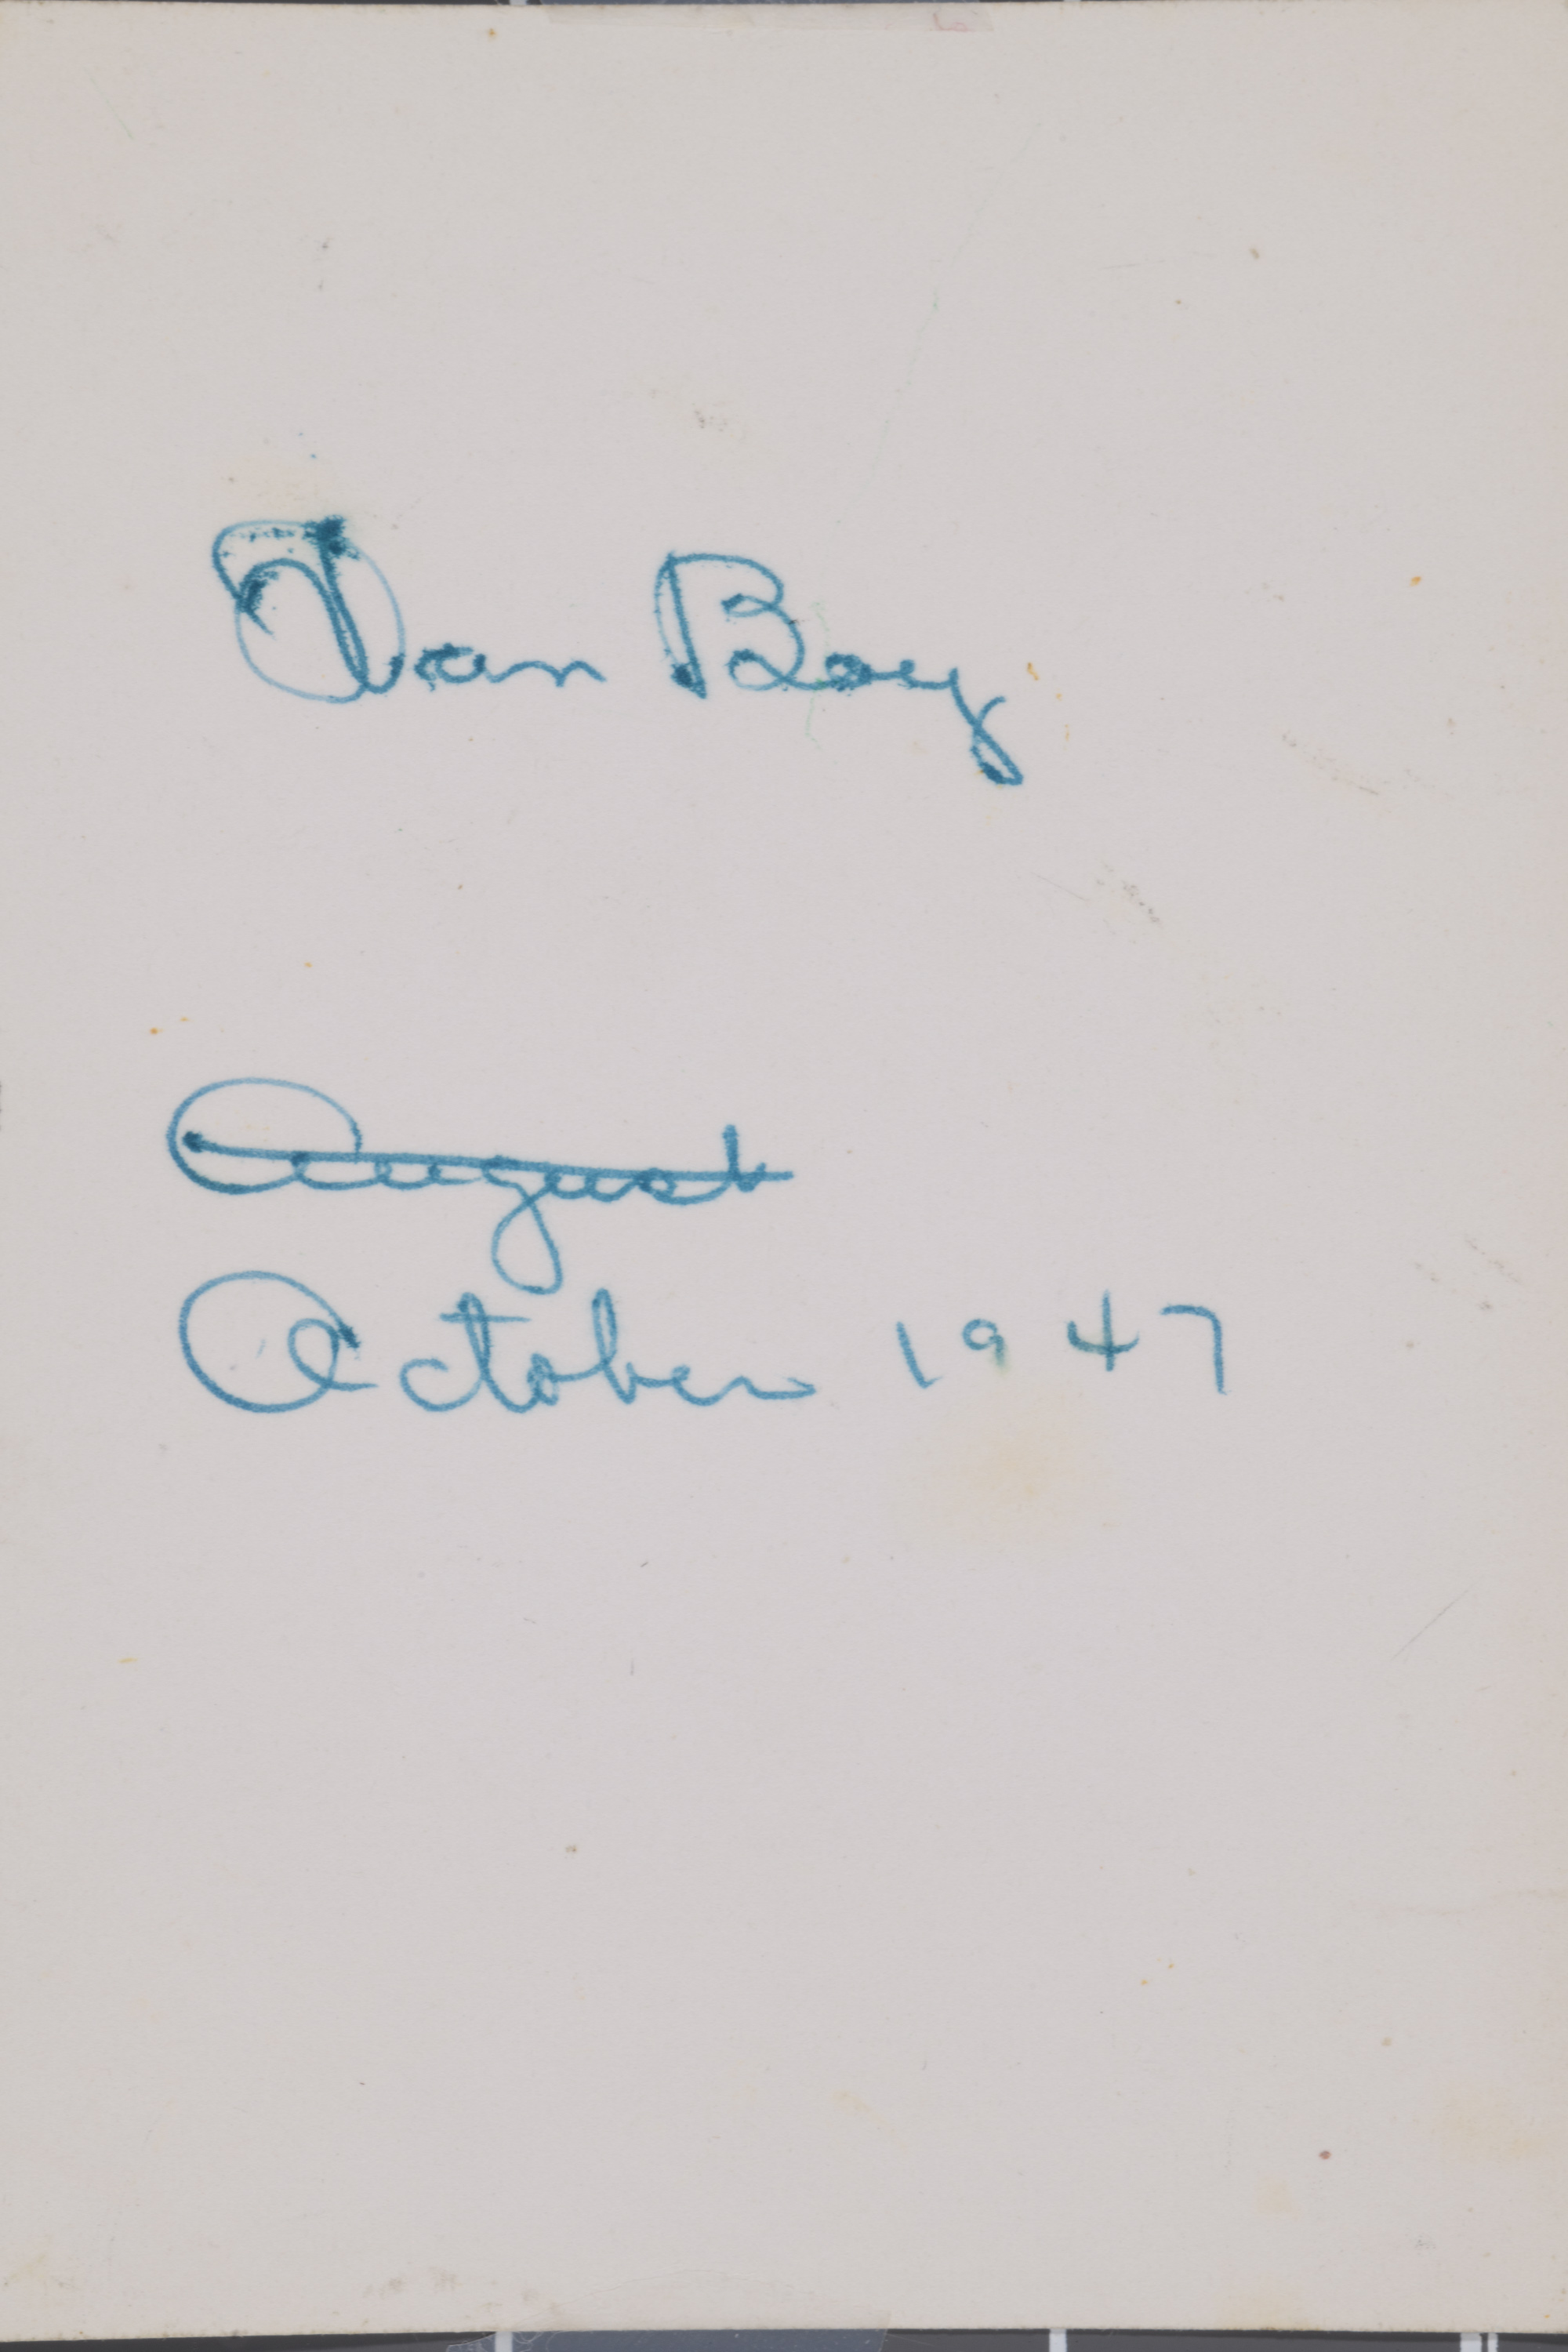 Van Boy
August
October 1947